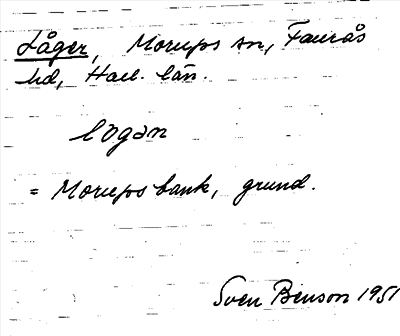 Låger, Morups sn, Faurås
hd, Hall. län.
lōgən
= Morups bank, grund.
Sven Benson 1951